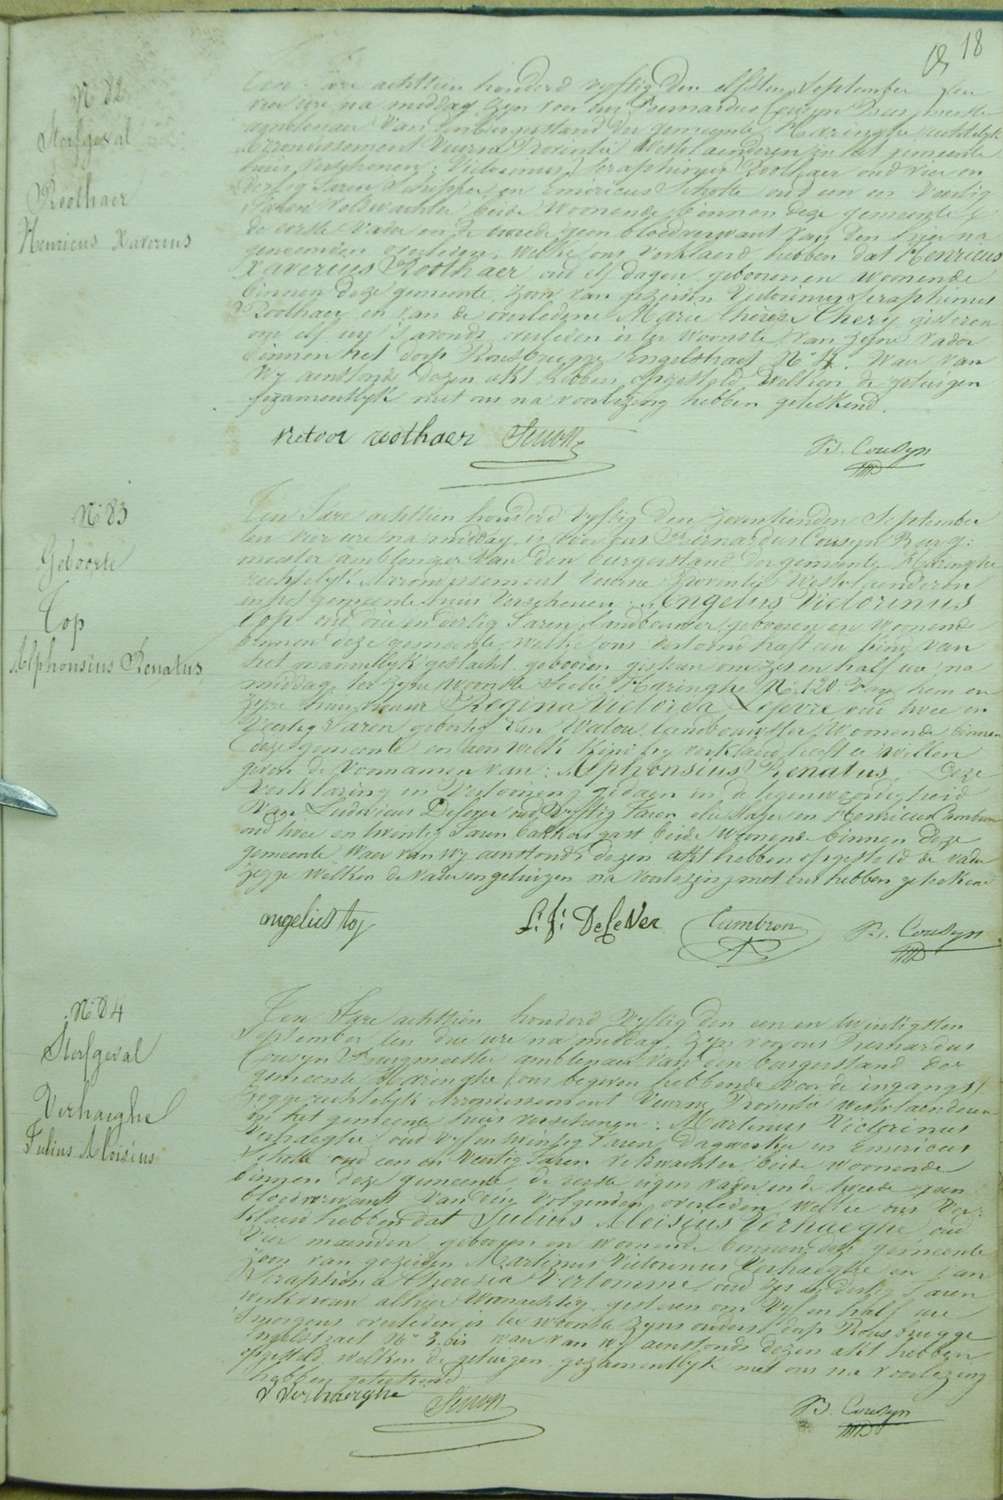 18
N° 82
Sterfgeval
Roothaer
Henricus Xaverius
Ten Jare achttien honderd vyftig den elfsten September ten
vier ure na middag zyn voor ons Bernardus Cousyn Burgmeester
amblenaer van den burgerstand der gemeente Haringhe rechtelyk
Arrondissement Veurne Provintie Westvlaenderen in het gemeente
huis verschenen: Victorinus Seraphinus Roothaer oud vier en
dertig Jaren Schipper en Emericus Schotte oud een en veertig
Jaren Veldwachter beide woonende binnen deze gemeente
de eerste vader en de tweede geen bloedverwant van den hier na
genoemden overleden, welke ons verklaerd hebben dat Henricus
Xaverius Roothaer oud elf dagen geboren en woonende
binnen deze gemeente, zoon van gezeiden Victorinus Seraphinus
Roothaer en van de overledene Marie Thérèse Thery gisteren
om elf ure 's avonds overleden is ter woonste van zyne vader
binnen het dorp Rousbrugge Engelstraet N° 4. Waer van
wy aenstonds dezen akt hebben opgesteld, welken de getuigen
gezamentlyk met ons na voorlezing hebben geteekend.
victoor roothaer
B. Cousyn
N° 83
Geboorte
Top
Alphonsius Renatus
Ten Jare achttien honderd vyftig den zeventienden September
ten vier ure na middag is voor ons Bernardus Cousyn Burg-
meester amblenaer van den burgerstand der gemeente Haringhe
rechtelyk Arrondissement Veurne Provintie Westvlaenderen
in het gemeente huis verschenen: Angelus Victorinus
Top oud drie en dertig Jaren, landbouwer geboren en woonende
binnen deze gemeente welke ons vertoont heeft een kind van
het mannelyk geslacht, geboren gisteren om zes en half ure na
middag ter zyne woonste Sectie Haringhe N° 120 van hem en
zyne huisvrouw Regina Victoria Lefevre oud twee en
dertig Jaren geboortig van Watou, landbouwster, woonende binnen
deze gemeente en aen welk kind hy verklaerd heeft te willen
geven de voornamen van: Alphonsius Renatus. Deze
verklaring en vertooning gedaen in de tegenwoordigheid
van Ludovicus Defever oud vyftig Jaren en Henricus Cambron
oud twee en twintig Jaren bakkers gast beide woonende binnen deze
gemeente. Waer van wy aenstonds dezen akt hebben opgesteld de vader
zegge welken de vader en getuigen na voorlezing met ons hebben geteekend
angelus top
L. J. DeFeVer
Cambron
B. Cousyn
N° 84
Sterfgeval
Verhaeghe
Julius Aloisius
Ten Jare achttien honderd vyftig den een en twintigsten
September ten drie ure na middag, zyn voor ons Bernardus
Cousyn Burgmeester amblenaer van den burgerstand der
gemeente Haringhe
zegge rechtelyk Arrondissement Veurne Provintie Westvlaenderen
in het gemeente huis verschenen: Martinus Victorinus
Verhaeghe oud vyf en twintig Jaren, Dagwerker en Emericus
Schotte oud een en veertig Jaren veldwachter, beide woonende
binnen deze gemeente, de eerste eigen vader en de tweede geen
bloedverwant van den volgenden overleden, welke ons ver-
klaerd hebben dat Julius Aloisius Verhaeghe oud
vier maenden geboren en woonende binnen deze gemeente
zoon van gezeiden Martinus Victorinus Verhaeghe en van
Seraphina Theresia oud zes en dertig Jaren
alhier woonachtig gisteren om vyf en half ure
's morgens overleden is ter woonste zyns ouders dorp Rousbrugge
Engelstraet N° 3 bis waer van wy aenstonds dezen akt hebben
opgesteld, welken de getuigen gezamentlyk met ons na voorlezing
hebben geteekend
v verhaeghe
B. Cousyn